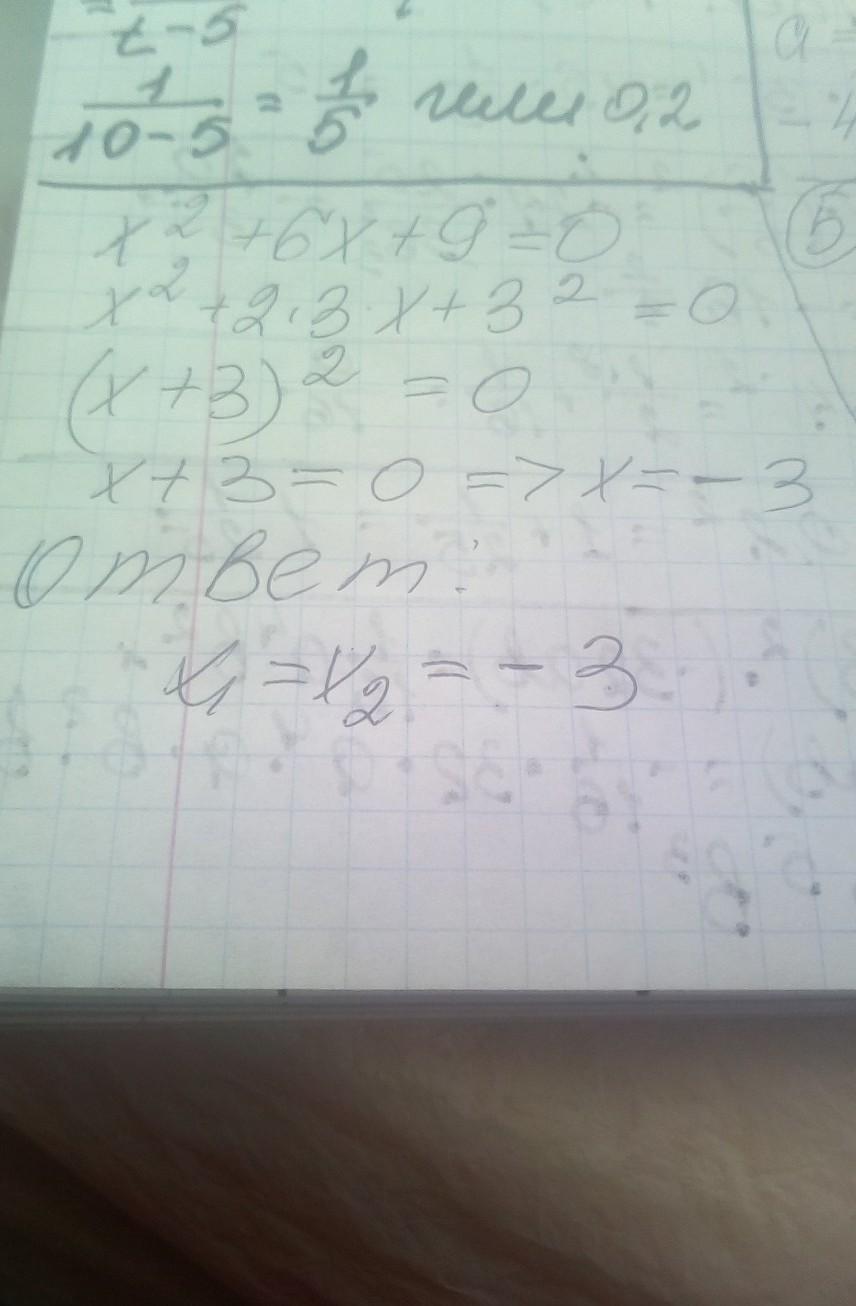 t-5
1/(10-5) = 1/5 или 0,2
a =
- 4
x² + 6x + 9 = 0
5
x² + 2·3·x + 3² = 0
(x + 3)² = 0
x + 3 = 0 => x = - 3
Ответ:
x₁ = x₂ = - 3